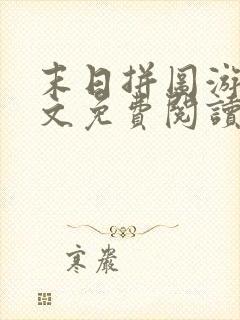 末日拼圖游
文免費閱讀
寒嚴